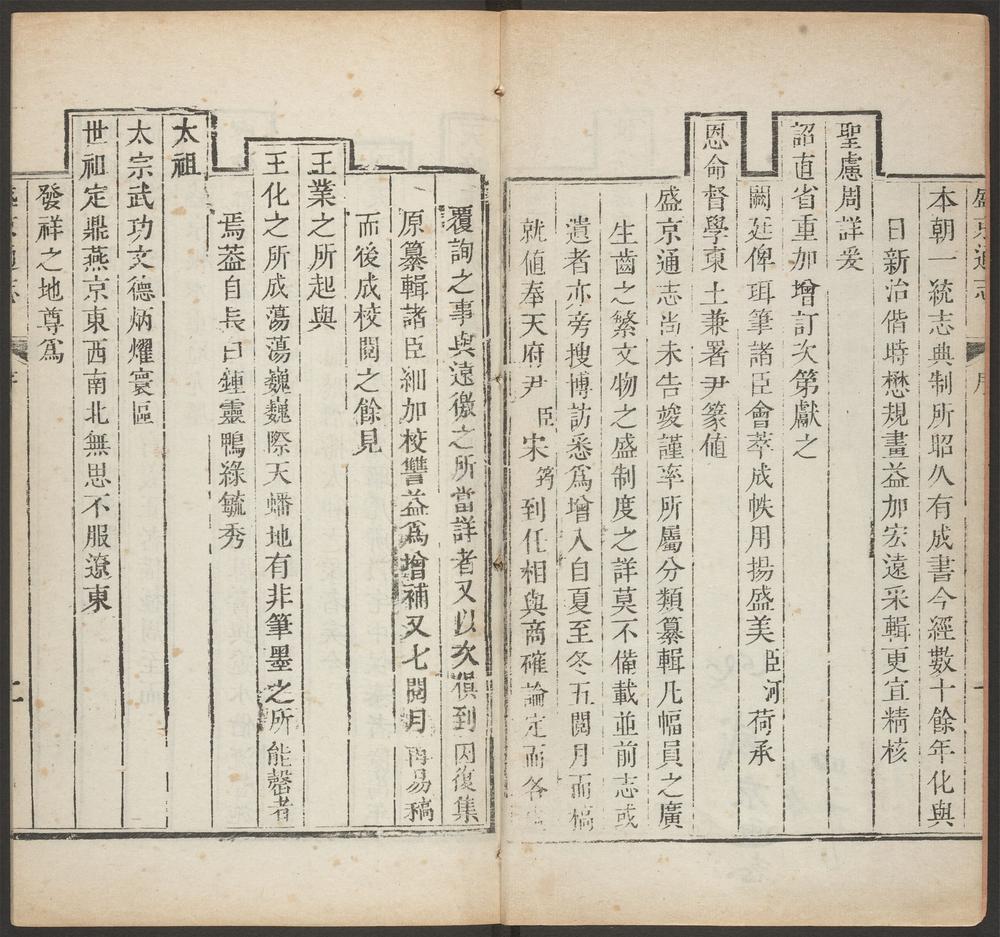 盛京通志
序
本朝一統志典制所昭久有成書今經數十餘年化與
日新治偕時懋規畫益加宏遠采輯更宜精核
聖慮周詳爰
詔直省重加增訂次第獻之
闕廷俾珥筆諸臣會萃成帙用揚盛美臣河荷承
恩命督學東土兼署尹篆值
盛京通志尚未告竣謹率所屬分類纂輯凡幅員之廣
生齒之繁文物之盛制度之詳莫不備載並前志或
遺者亦旁搜博訪悉爲增入自夏至冬五閱月而槁
就値奉天府尹臣宋筠到任相與商確論定而各
覆詢之事與遠徼之所當詳者又以次俱到因復集
原纂輯諸臣細加校讐益爲增補又七閱月再易稿
而後成校閱之餘見
王業之所起與
王化之所成蕩蕩巍巍際天蟠地有非筆墨之所能罄者
焉葢自長白鍾靈鴨綠毓秀
太祖
太宗武功文德炳燿寰區
世祖定鼎燕京東西南北無思不服遼東
發祥之地尊爲
二